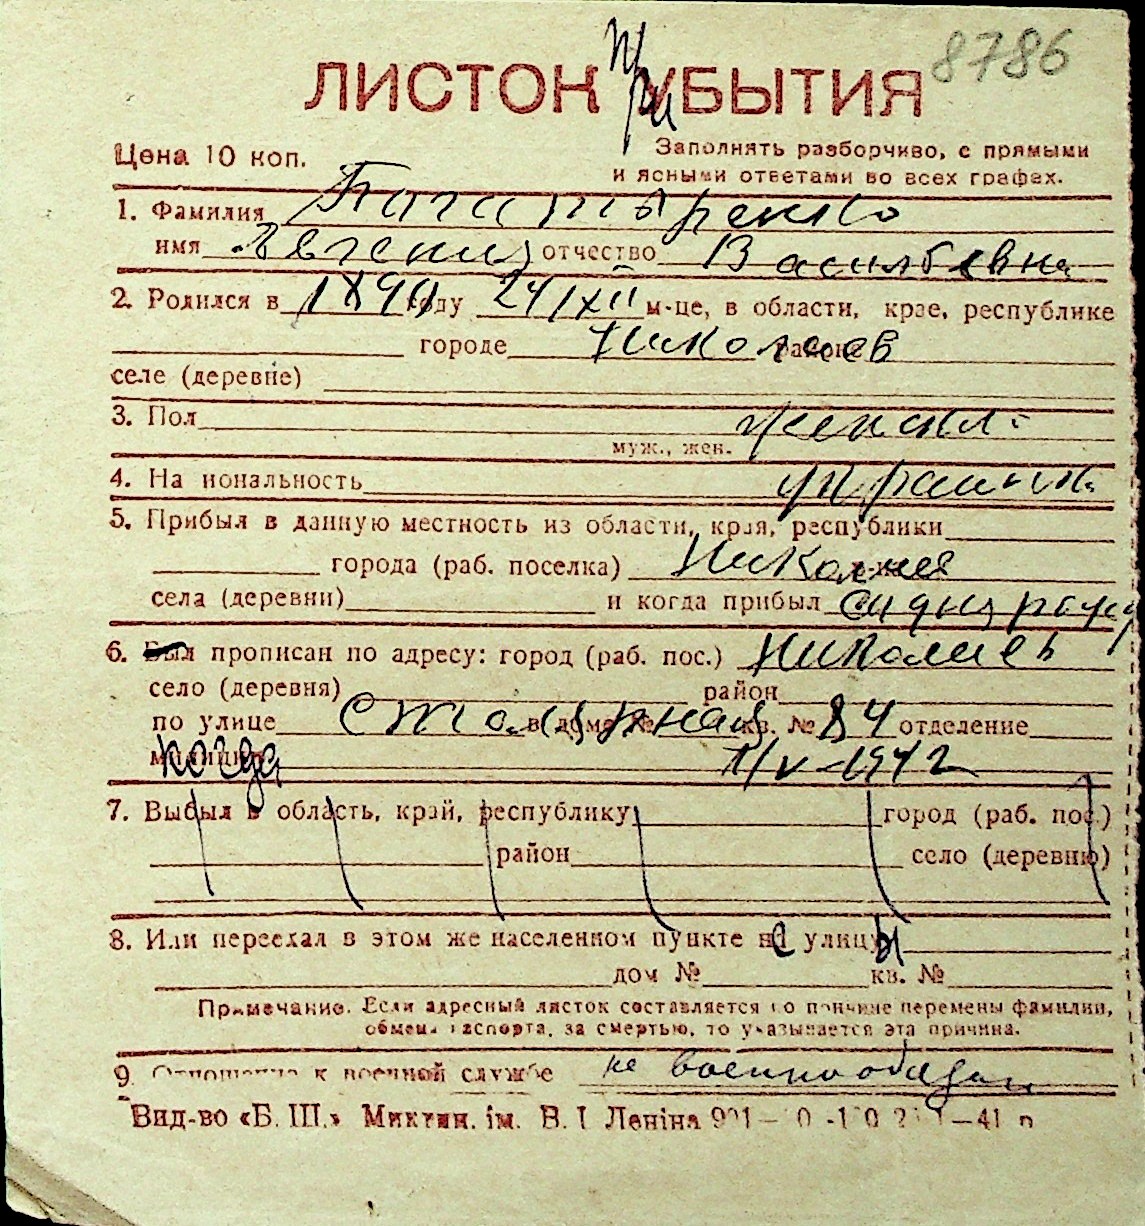 8786
ЛИСТОК при УБЫТИЯ
Цена 10 коп.
Заполнять разборчиво, с прямыми
и ясными ответами во всех графах.
1. Фамилия Богатыренко
имя Евгения отчество Васильевна
2. Родился в 1890 году 24/XII м-це, в области, крае, республике
городе Николаев районе
селе (деревне)
3. Пол женск.
муж., жен.
4. На иональность украинк.
5. Прибыл в данную местность из области, края, республики
города (раб. поселка) Николаев
села (деревни) и когда прибыл
6. Был прописан по адресу: город (раб. пос.) Николаев
село (деревня) район
по улице Столярная в доме № кв. № 84 отделение
милиции когда 1/V-1942
7. Выбыл в область, край, республику город (раб. пос.)
район село (деревню)
8. Или переехал в этом же населенном пункте с улицы
дом № кв. №
Примечание. Если адресный листок составляется по причине перемены фамилии,
обмена паспорта, за смертью, то указывается эта причина.
9. Отношение к военной службе не военнообязан
Вид-во «Б. Ш.» Миктип. ім. В. І Леніна